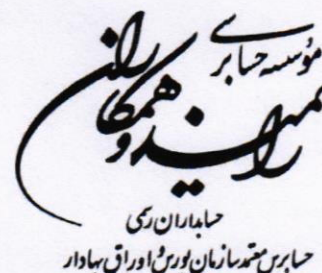 مؤسسه حسابرسی
رامیند و همکاران
حسابداران رسمی
حسابرس معتمد سازمان بورس و اوراق بهادار